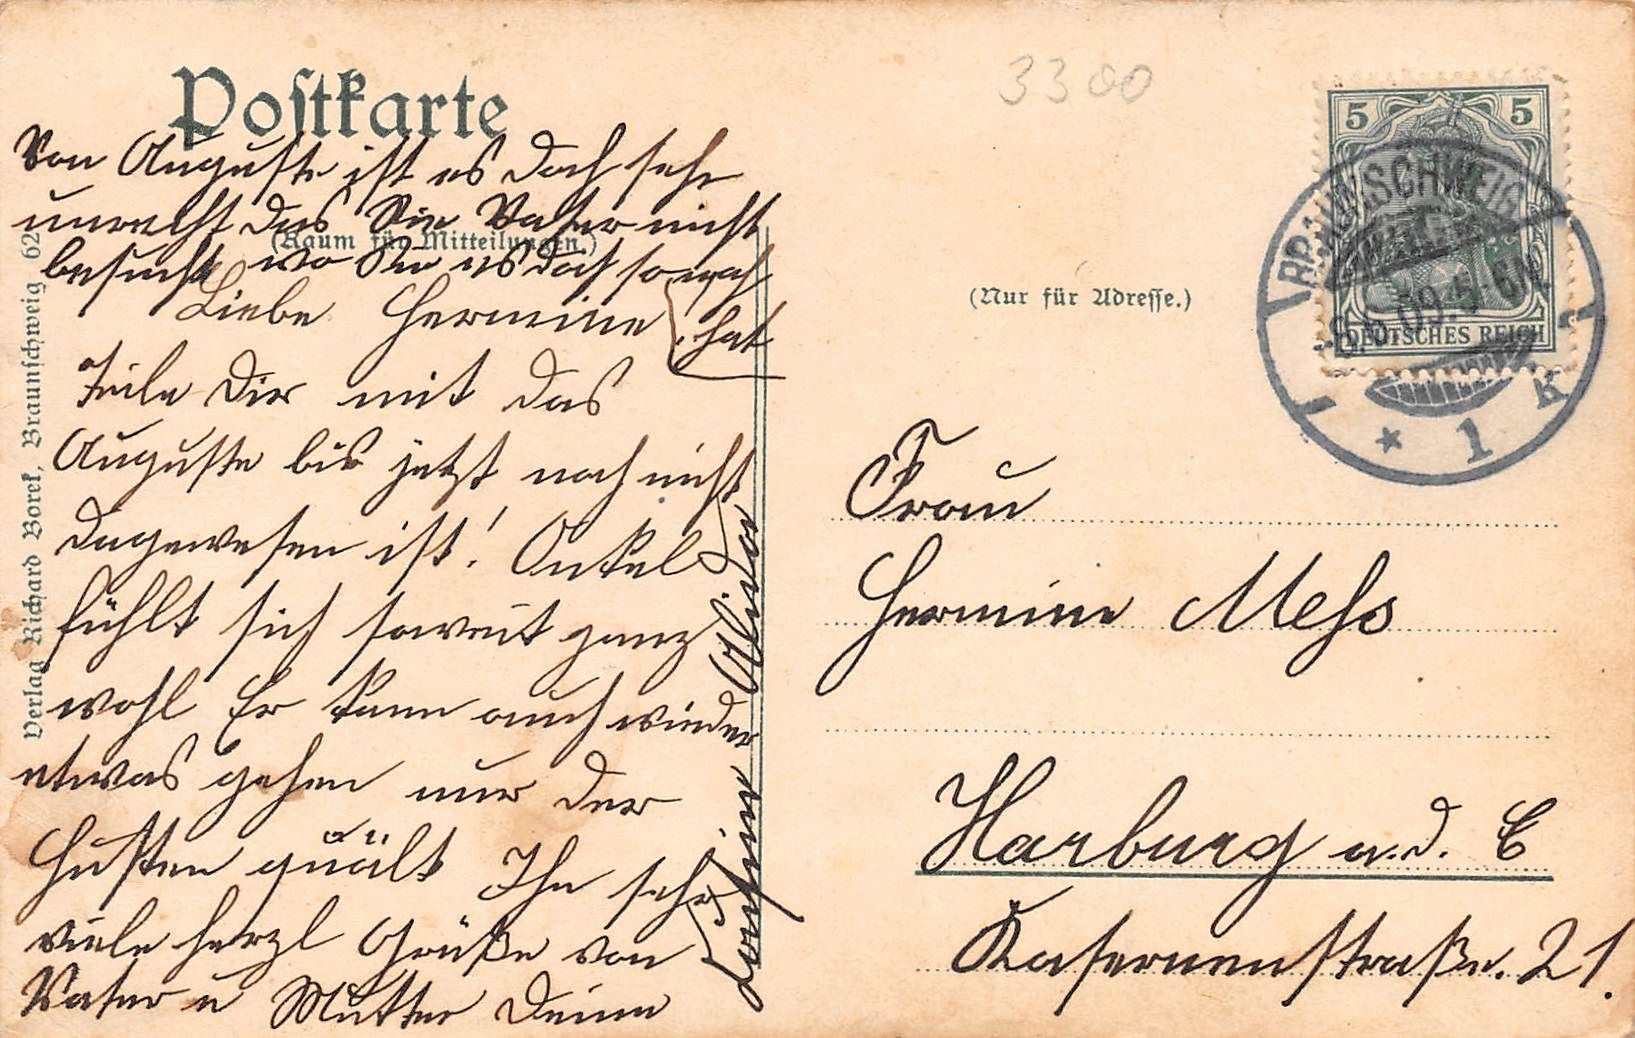 Postkarte
3300
Von Auguste ist es doch sehr
unrecht das Sie Vater nicht
(Raum für Mitteilungen.)
besucht wo Sie es doch so nah
hat
Liebe Hermine
Teile Dir mit das
Auguste bis jetzt noch nicht
dagewesen ist! Onkel
fühlt sich soweit ganz
wohl Er kann auch wieder
etwas gehen nur der
Husten quält Ihn sehr
viele herzl Grüße von
Vater u Mutter Deine
Verlag Richard Borek, Braunschweig 62
5 5
DEUTSCHES REICH
BRAUNSCHWEIG
09.5-6N
* 1 K
(Nur für Adresse.)
Frau
Hermine Mess
Harburg a.d. E
Kasernenstraße. 21.